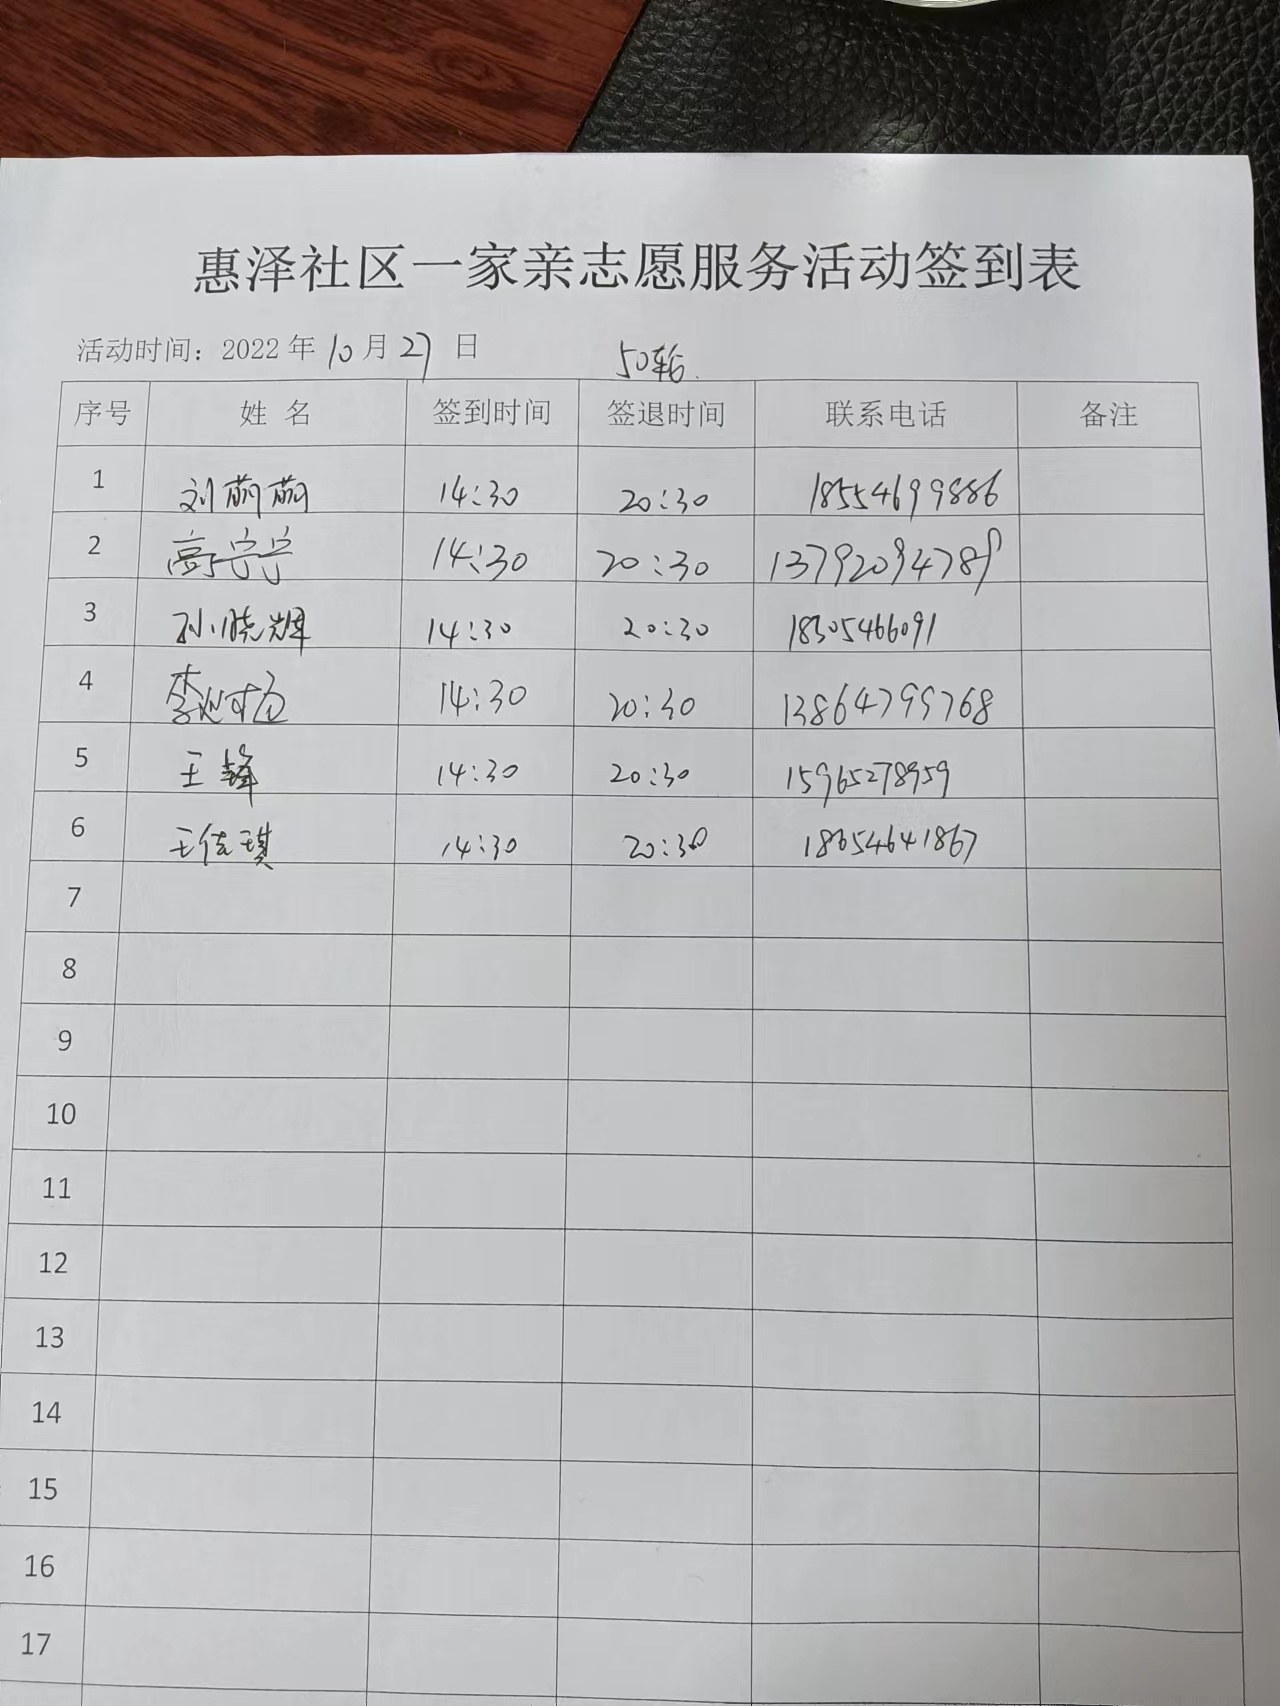 惠泽社区一家亲志愿服务活动签到表
活动时间：2022年10月27日 50轮.
序号 姓 名 签到时间 签退时间 联系电话 备注
1 刘萌萌 14:30 20:30 18554699886
2 高宁宁 14:30 20:30 13792094789
3 孙小晓辉 14:30 20:30 18305466091
4 李 14:30 20:30 13864799768
5 王锋 14:30 20:30 15965278959
6 王佳琪 14:30 20:30 18654641867
7
8
9
10
11
12
13
14
15
16
17